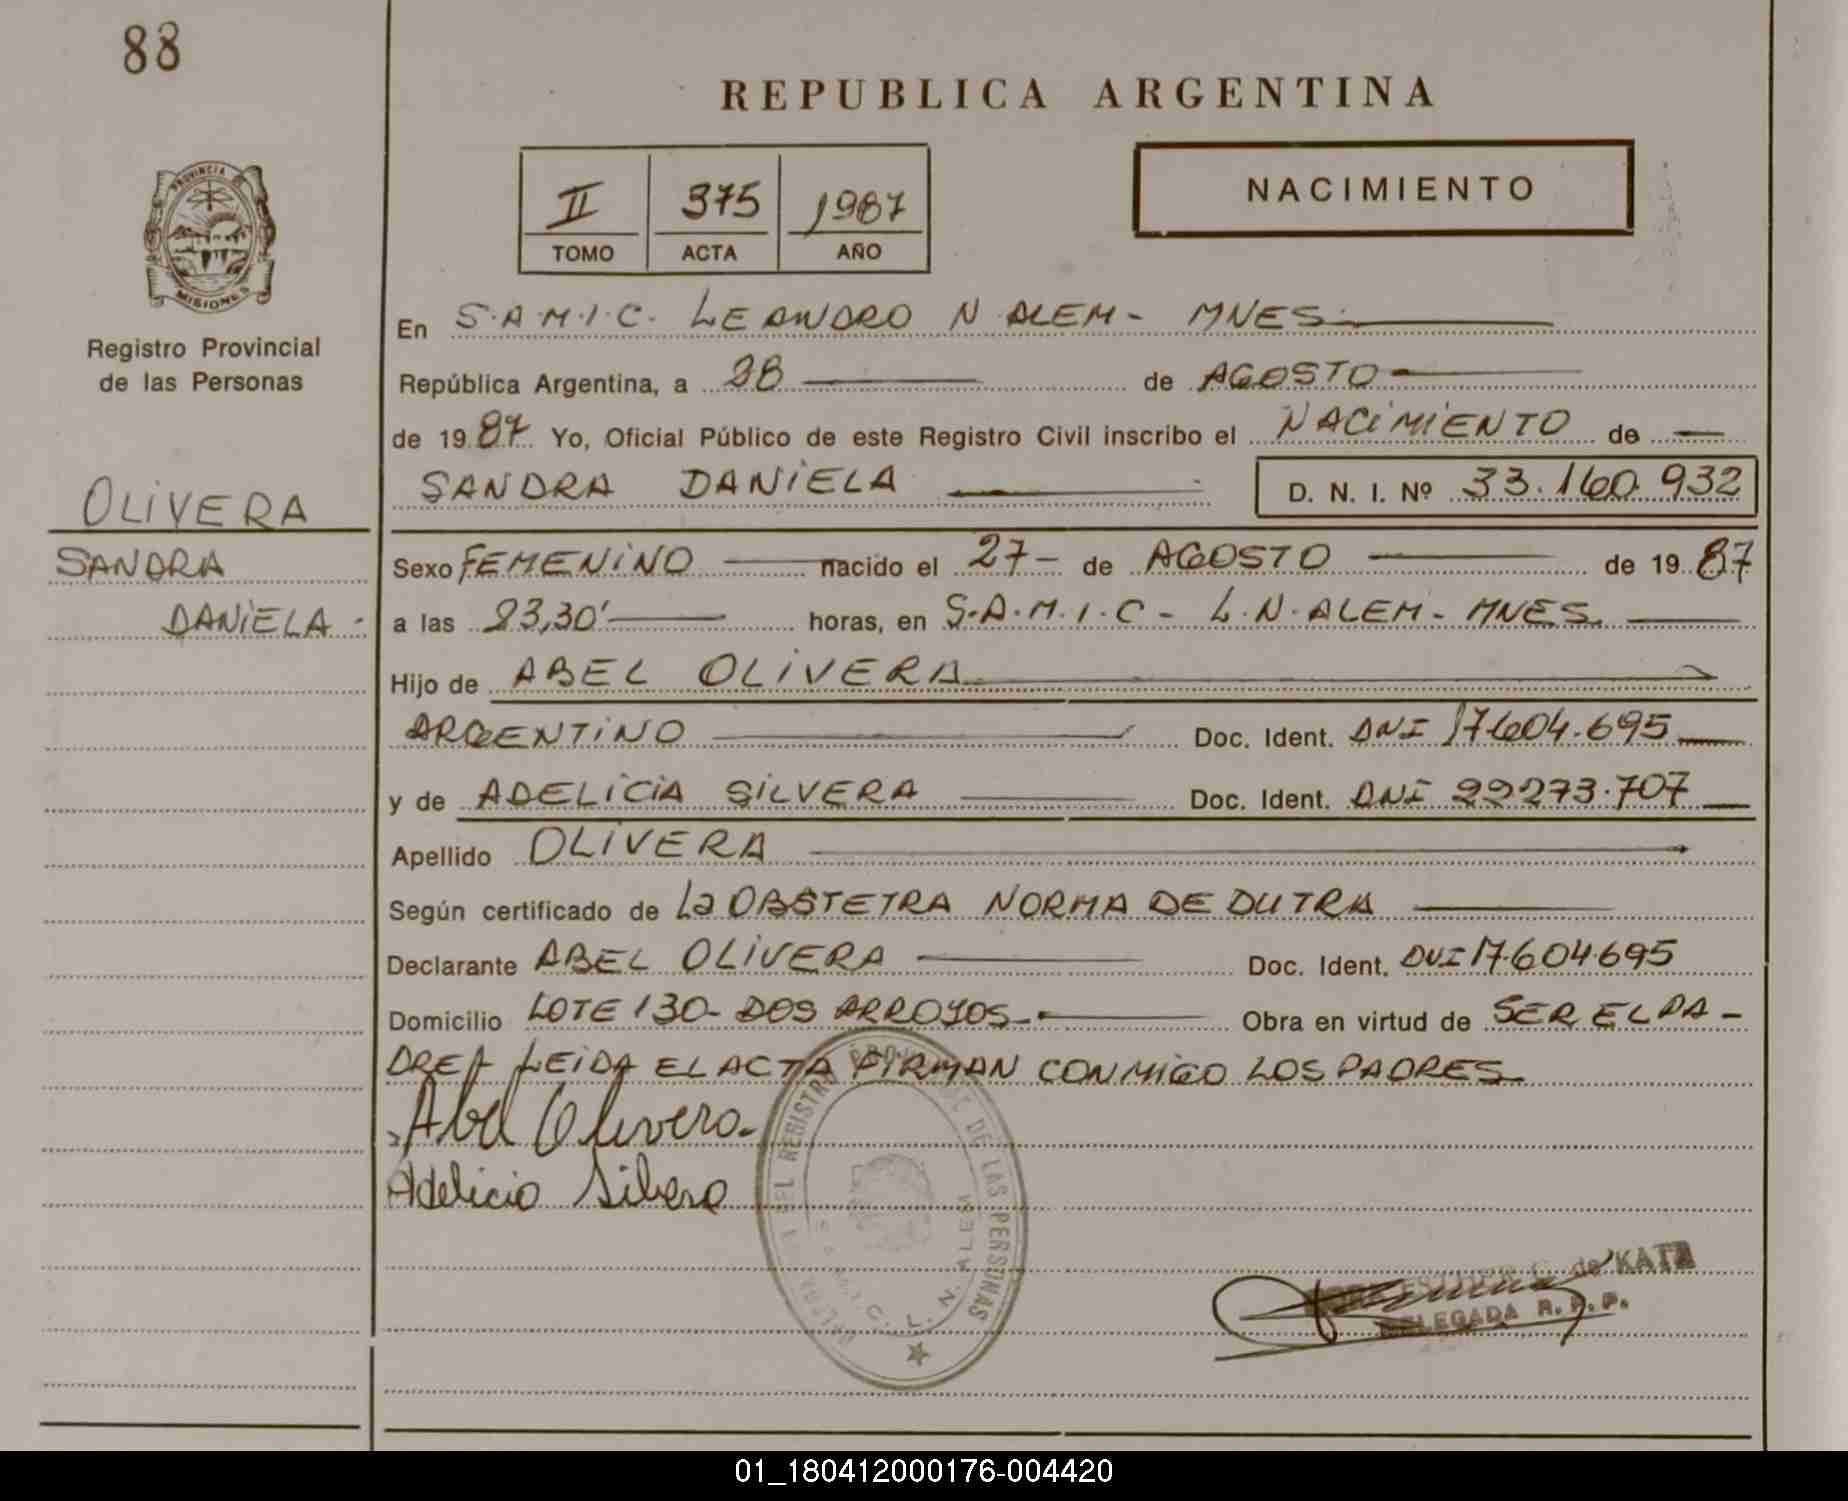 88
REPUBLICA ARGENTINA
PROVINCIA DE
MISIONES
Registro Provincial
de las Personas
II 375 1987
TOMO ACTA AÑO
NACIMIENTO
En S.A.M.I.C. LEANDRO N ALEM - MNES.
República Argentina, a 28 de AGOSTO
de 19 87 Yo, Oficial Público de este Registro Civil inscribo el NACIMIENTO de
SANDRA DANIELA D. N. I. Nº 33.160.932
OLIVERA
SANDRA
DANIELA -
Sexo FEMENINO nacido el 27 - de AGOSTO de 19 87
a las 23,30' horas, en S.A.M.I.C - L.N. ALEM - MNES.
Hijo de ABEL OLIVERA
ARGENTINO Doc. Ident. DNI 17.604.695
y de ADELICIA SILVERA Doc. Ident. DNI 22273.707
Apellido OLIVERA
Según certificado de La OBSTETRA NORMA DE DUTRA
Declarante ABEL OLIVERA Doc. Ident. DNI 17.604.695
Domicilio LOTE 130 - DOS ARROYOS - Obra en virtud de SER EL PA -
DRE LEIDA EL ACTA FIRMAN CONMIGO LOS PADRES
Abel Olivera.
Adelicia Silvera
DEL REGISTRO DE LAS PERSONAS
L. N. ALEM
de KATZ
DELEGADA R. P. P.
01_180412000176-004420